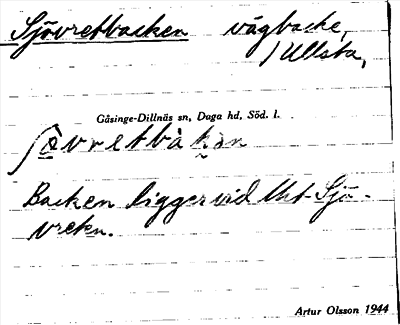 Sjövretbacken vägbacke,
/Ullsta,
Gåsinge-Dillnäs sn, Daga hd, Söd. l.
ʃövretbàkən
Backen ligger vid Sjö-
vreten.
Artur Olsson 1944